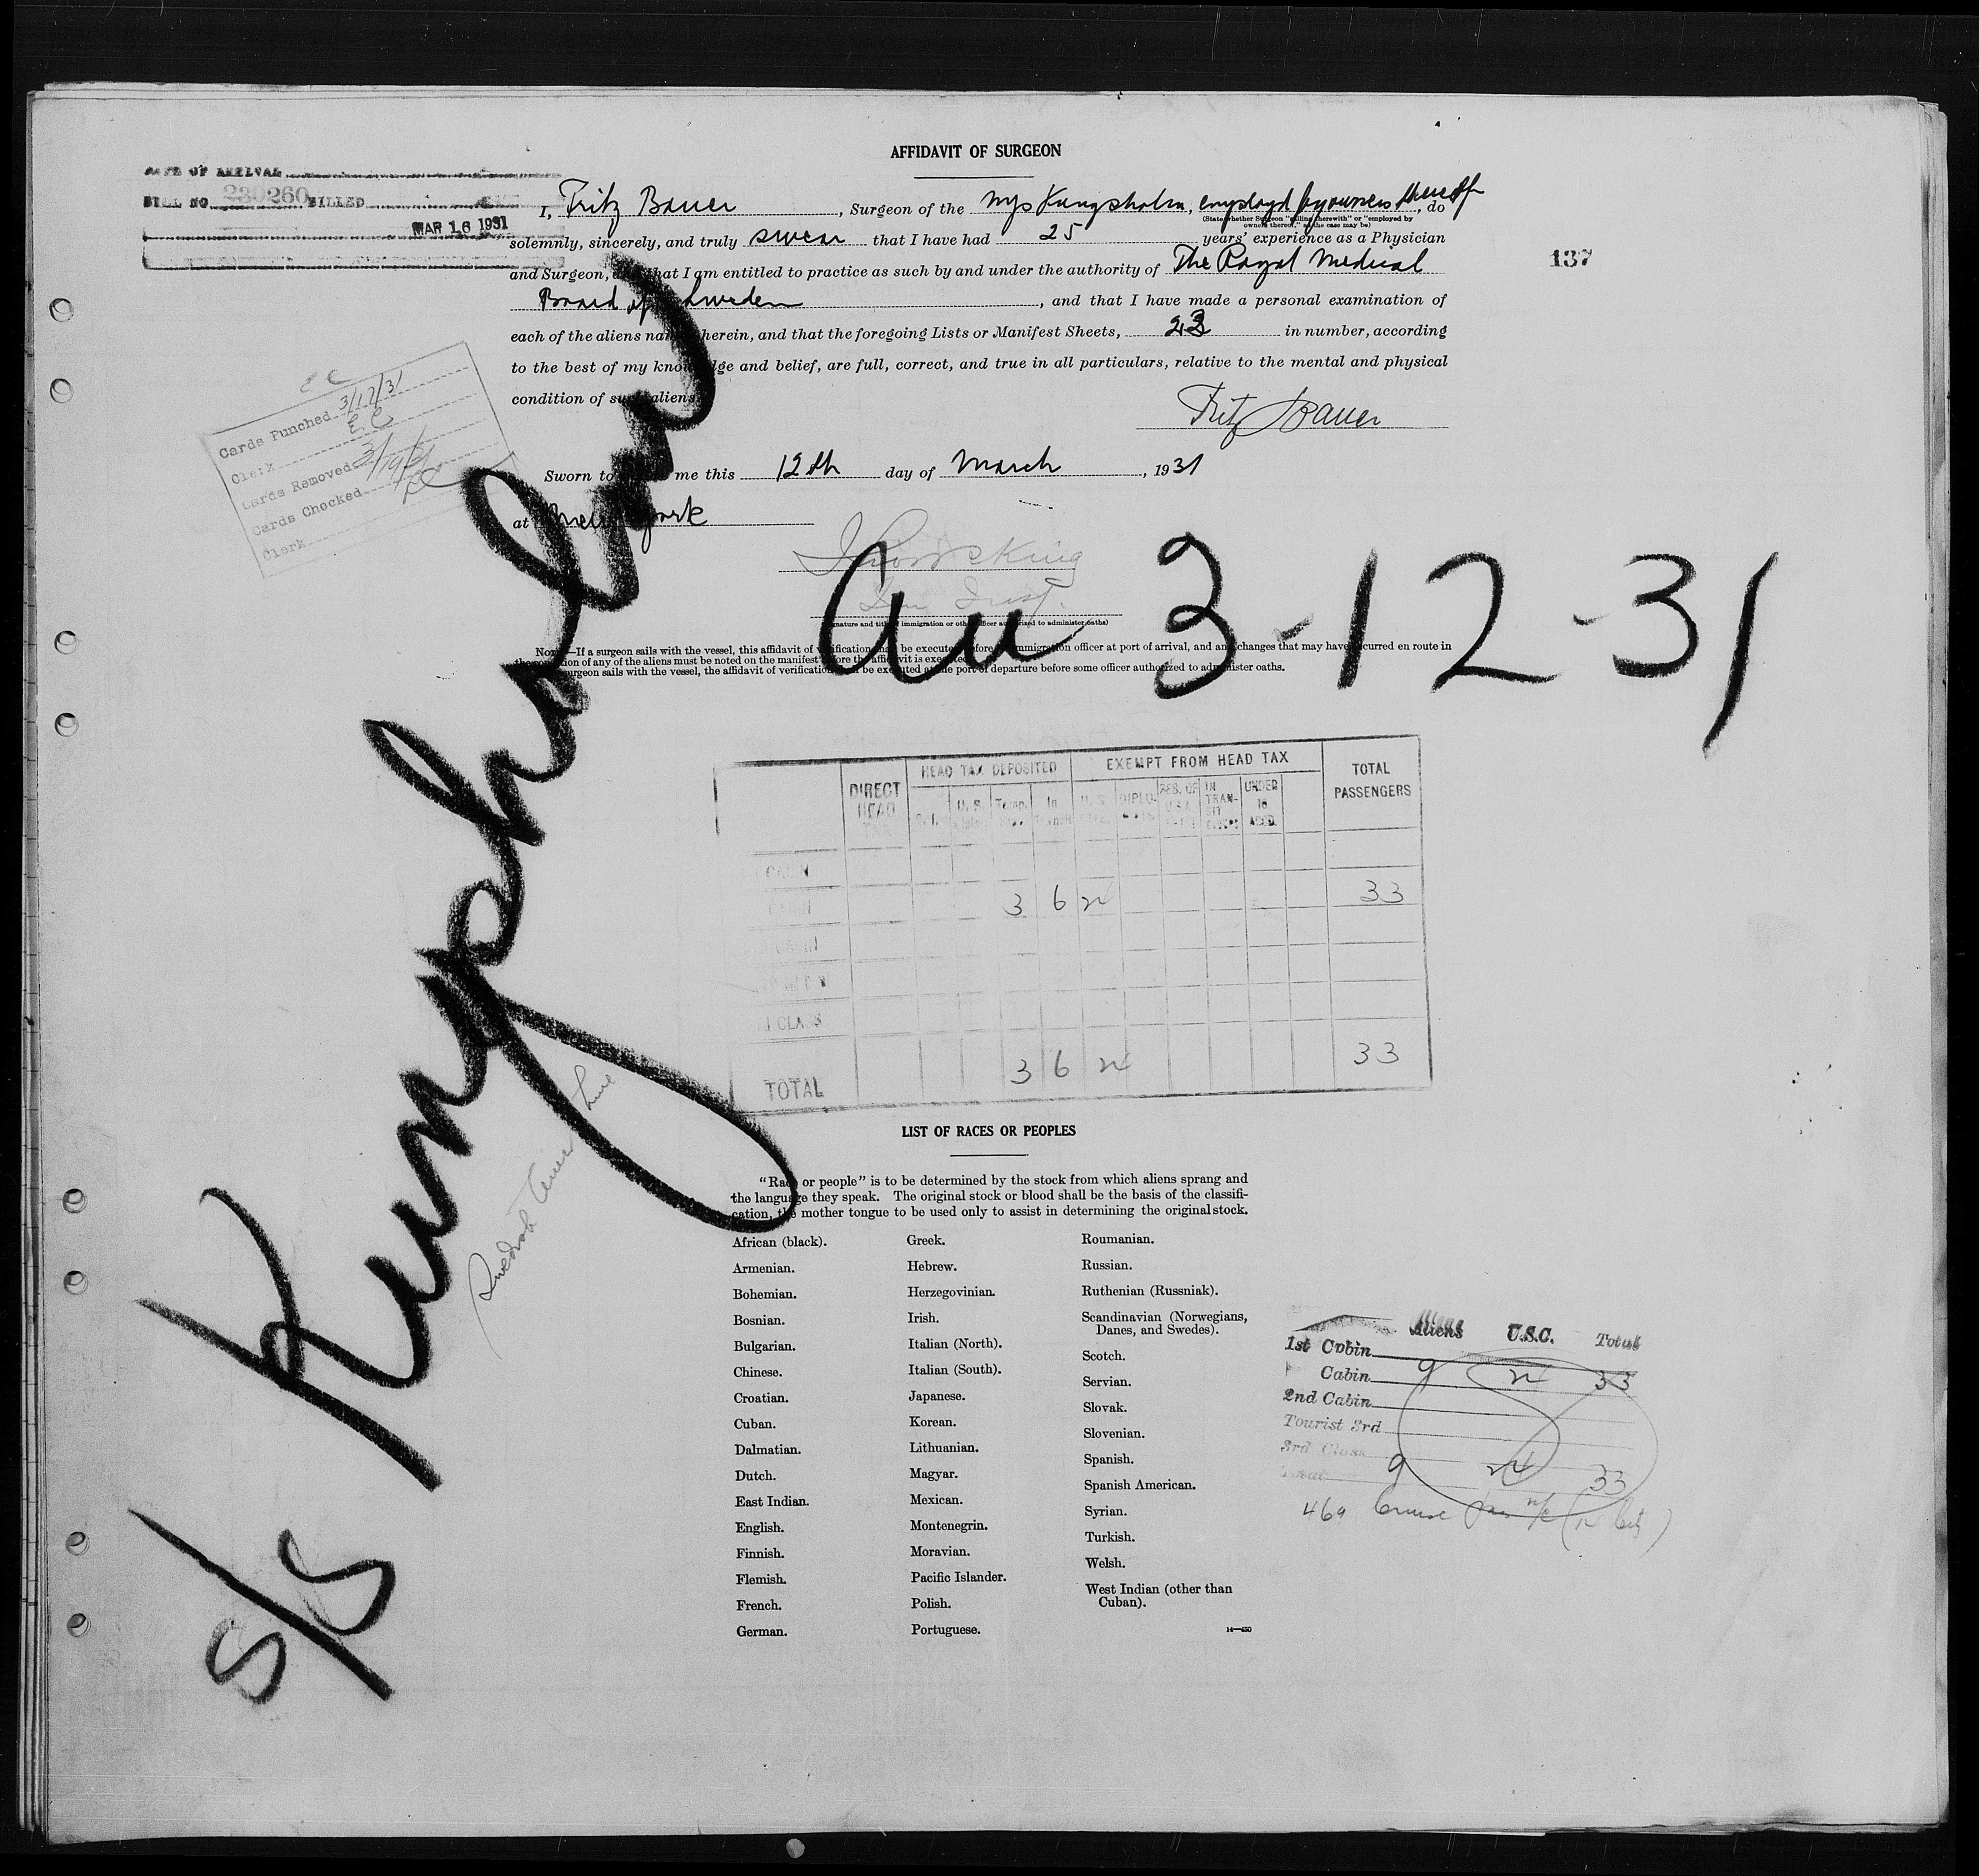 AFFIDAVIT OF SURGEON
DATE OF ARRIVAL
BILL NO. 230260 BILLED
MAR 16 1931
137
I, Fritz Bauer, Surgeon of the M/S Kungsholm, employd by owners thereof, do
(State whether Surgeon "sailing therewith" or "employed by
owners thereof," as the case may be)
solemnly, sincerely, and truly swear that I have had 25 years' experience as a Physician
and Surgeon, and that I am entitled to practice as such by and under the authority of The Royal Medical
Board of Sweden, and that I have made a personal examination of
each of the aliens named herein, and that the foregoing Lists or Manifest Sheets, 23 in number, according
to the best of my knowledge and belief, are full, correct, and true in all particulars, relative to the mental and physical
condition of such aliens.
Fritz Bauer
Sworn to before me this 12th day of March, 1931
at New York
King
(Signature and title of immigration or other officer authorized to administer oaths)
NOTE.—If a surgeon sails with the vessel, this affidavit of verification must be executed before an immigration officer at port of arrival, and any changes that may have occurred en route in
the condition of any of the aliens must be noted on the manifest before the affidavit is executed.
surgeon sails with the vessel, the affidavit of verification must be executed at the port of departure before some officer authorized to administer oaths.
E C
Cards Punched 3/17/31
Clerk E.C
Cards Removed 3/19/31
Cards Checked
Clerk
S/S Kungsholm
Swedish Amer Line
Arr 3-12-31
DIRECT HEAD TAX
HEAD TAX DEPOSITED
EXEMPT FROM HEAD TAX
TOTAL PASSENGERS
U. S.
Temp.
In
U. S.
DIPLO-
RES. OF
IN TRAN-SIT
UNDER 16 ACCD.
CABIN
CABIN 3 6 24 33
CABIN
CLASS
TOTAL 3 6 24 33
LIST OF RACES OR PEOPLES
"Race or people" is to be determined by the stock from which aliens sprang and
the language they speak. The original stock or blood shall be the basis of the classifi-
cation, the mother tongue to be used only to assist in determining the original stock.
African (black).
Armenian.
Bohemian.
Bosnian.
Bulgarian.
Chinese.
Croatian.
Cuban.
Dalmatian.
Dutch.
East Indian.
English.
Finnish.
Flemish.
French.
German.
Greek.
Hebrew.
Herzegovinian.
Irish.
Italian (North).
Italian (South).
Japanese.
Korean.
Lithuanian.
Magyar.
Mexican.
Montenegrin.
Moravian.
Pacific Islander.
Polish.
Portuguese.
Roumanian.
Russian.
Ruthenian (Russniak).
Scandinavian (Norwegians,
Danes, and Swedes).
Scotch.
Servian.
Slovak.
Slovenian.
Spanish.
Spanish American.
Syrian.
Turkish.
Welsh.
West Indian (other than
Cuban).
Aliens U.S.C. Total
1st Cabin
Cabin 9 24 33
2nd Cabin
Tourist 3rd
3rd Class
Total 9 24 33
469 Cruise